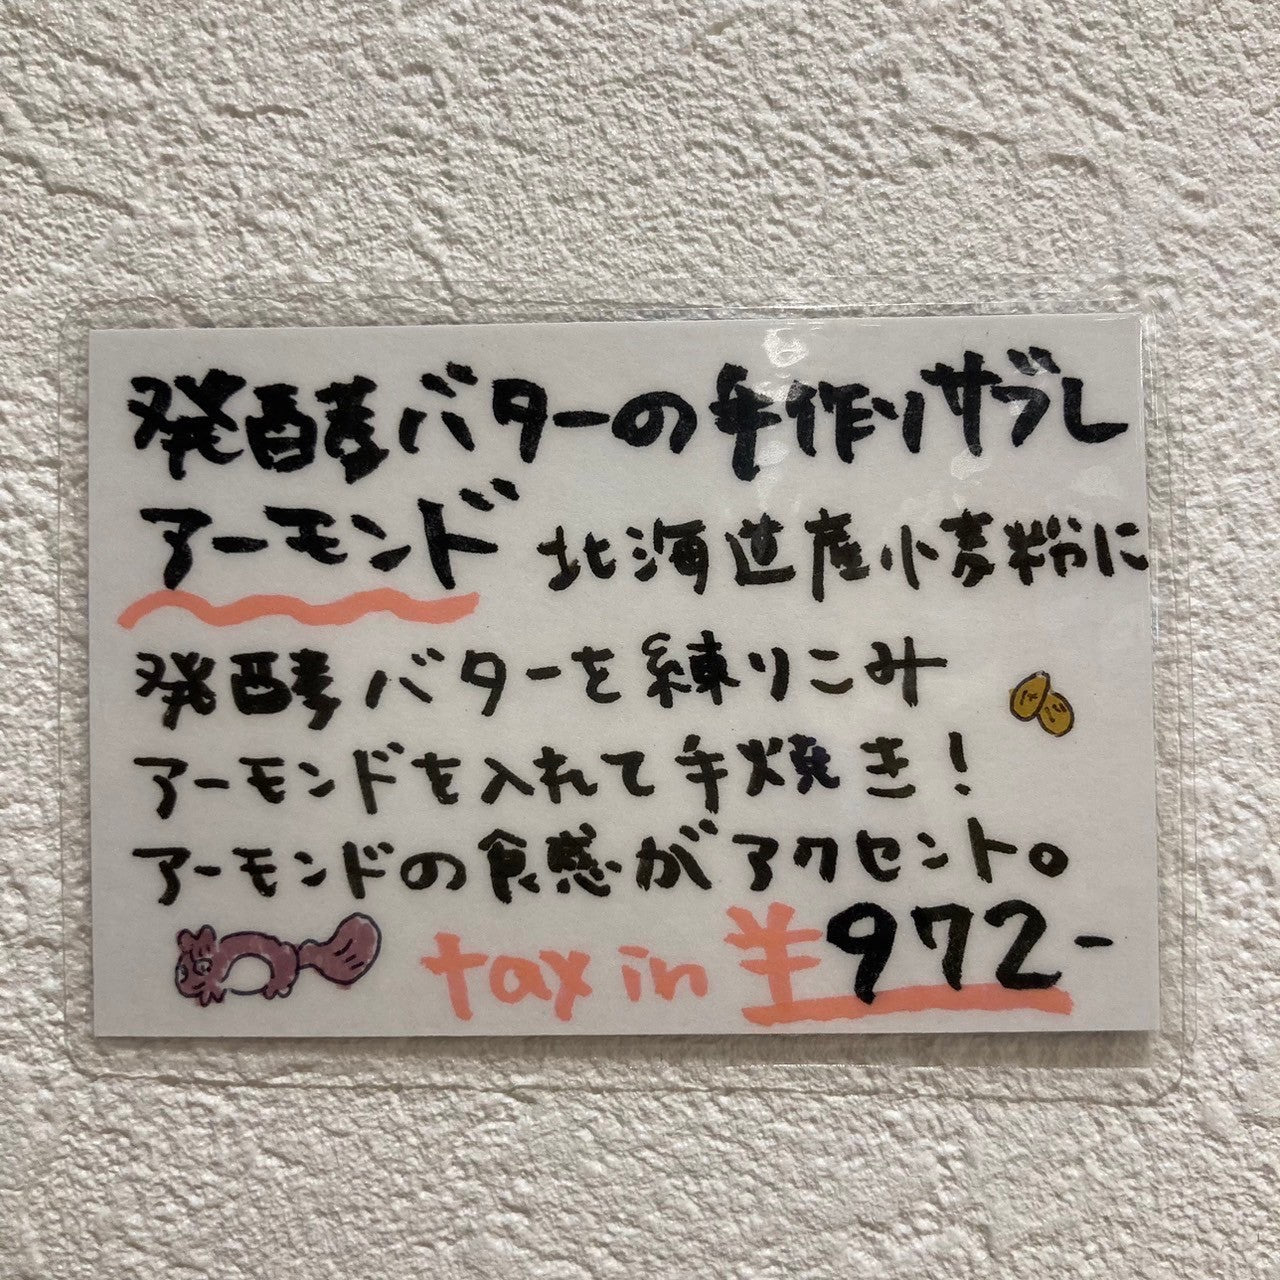 発酵バターの手作りサブレ
アーモンド 北海道産小麦粉に
発酵バターを練りこみ
アーモンドを入れて手焼き！
アーモンドの食感がアクセント。
tax in ¥972-